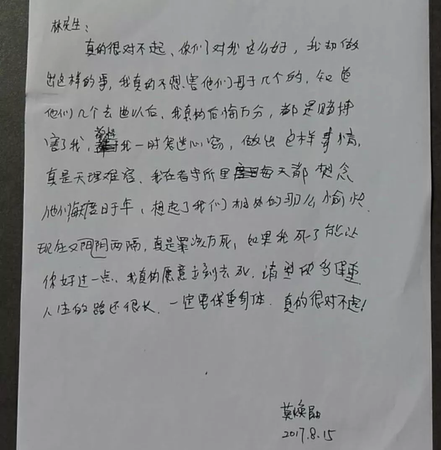 林先生：
真的很对不起、你们对我这么好，我却做
出这样的事，我真的不想害他们母子几个的，知道
他们几个去世以后、我真的后悔万分，都是赌博
害了我，我一时鬼迷心窍，做出这样事情，
真是天理难容、我在看守所里每天都想念
他们度日于年，想起了我们相处的那么愉快、
现在又阴阳两隔，真是罪该万死，如果我死了能让
你好过一点、我真的愿意立刻去死、请坚强多保重
人生的路还很长、一定要保重身体、真的很对不起！
莫焕晶
2017.8.15